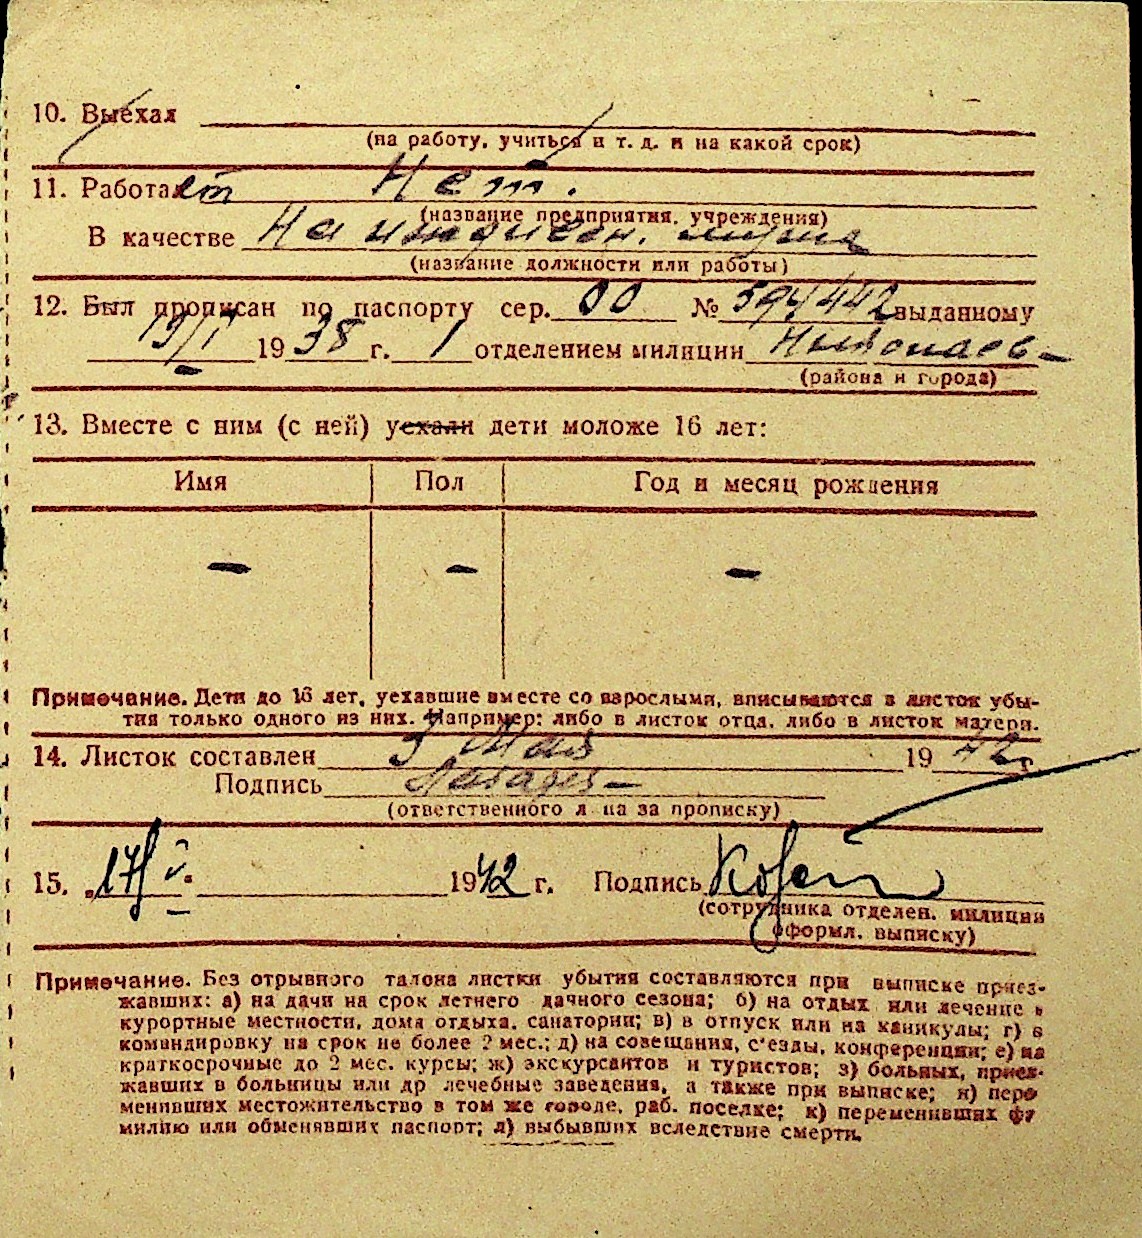 10. Выехал
(на работу, учиться и т. д. и на какой срок)
11. Работает Нет.
(название предприятия, учреждения)
В качестве На иждивен. мужа
(название должности или работы)
12. Был прописан по паспорту сер. 00 № 594442 выданному
19/I 1938 г. 1 отделением милиции Николаев-
(района и города)
13. Вместе с ним (с ней) уехали дети моложе 16 лет:
Имя Пол Год и месяц рождения
— — —
Примечание. Дети до 16 лет, уехавшие вместе со взрослыми, вписываются в листок убы-
тия только одного из них. Например: либо в листок отца, либо в листок матери.
14. Листок составлен 3 Мая 1942 г
Подпись
(ответственного лица за прописку)
15. „17/V" 1942 г. Подпись
(сотрудника отделен. милиции
оформл. выписку)
Примечание. Без отрывного талона листки убытия составляются при выписке приез-
жавших: а) на дачи на срок летнего дачного сезона; б) на отдых или лечение в
курортные местности, дома отдыха, санатории; в) в отпуск или на каникулы; г) в
командировку на срок не более 2 мес.; д) на совещания, с'езды, конференции; е) на
краткосрочные до 2 мес. курсы; ж) экскурсантов и туристов; з) больных, приез-
жавших в больницы или др лечебные заведения, а также при выписке; и) пере
менивших местожительство в том же городе, раб. поселке; к) переменивших фа
милию или обменявших паспорт; л) выбывших вследствие смерти.